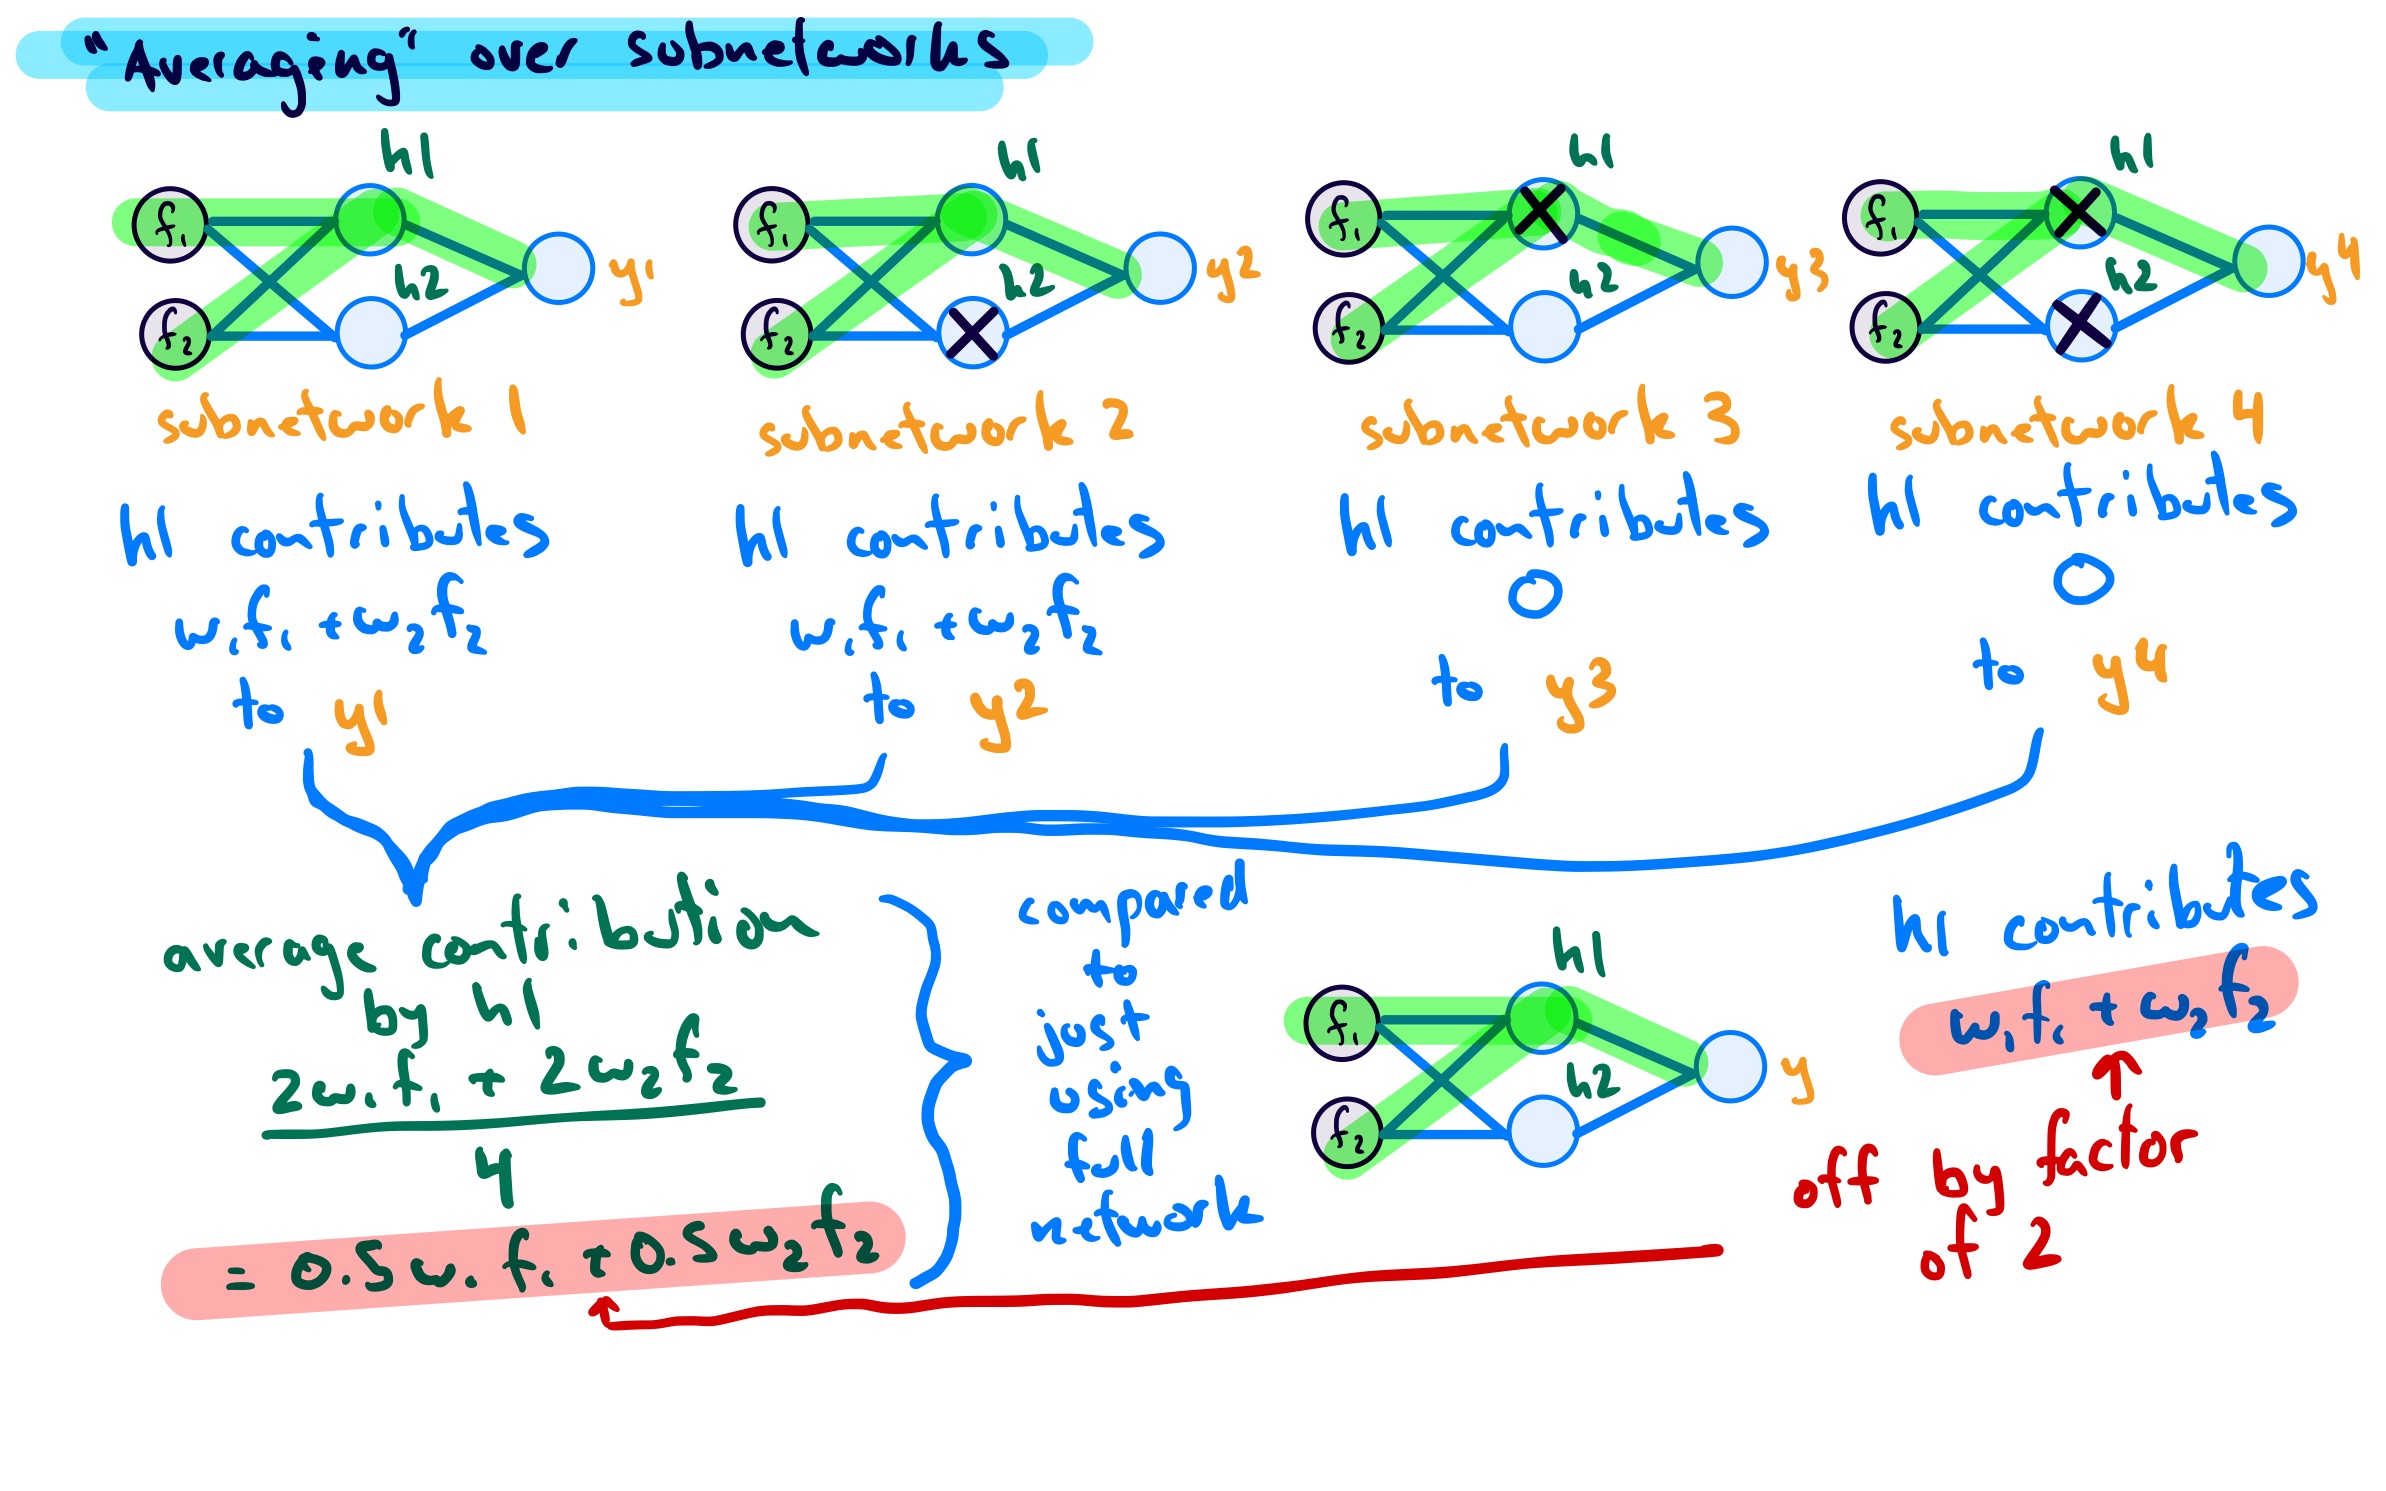 "Averaging" over subnetworks
h1
f1
h2
f2
y1
subnetwork 1
h1 contributes
w1f1 + w2f2
to y1
h1
f1
h2
f2
y2
subnetwork 2
h1 contributes
w1f1 + w2f2
to y2
h1
f1
h2
f2
y3
subnetwork 3
h1 contributes
0
to y3
h1
f1
h2
f2
y4
subnetwork 4
h1 contributes
0
to y4
average contribution
by h1
2w1f1 + 2w2f2
4
= 0.5w1f1 + 0.5w2f2
compared
to
just
using
full
network
h1
f1
h2
f2
y
h1 contributes
w1f1 + w2f2
off by factor
of 2